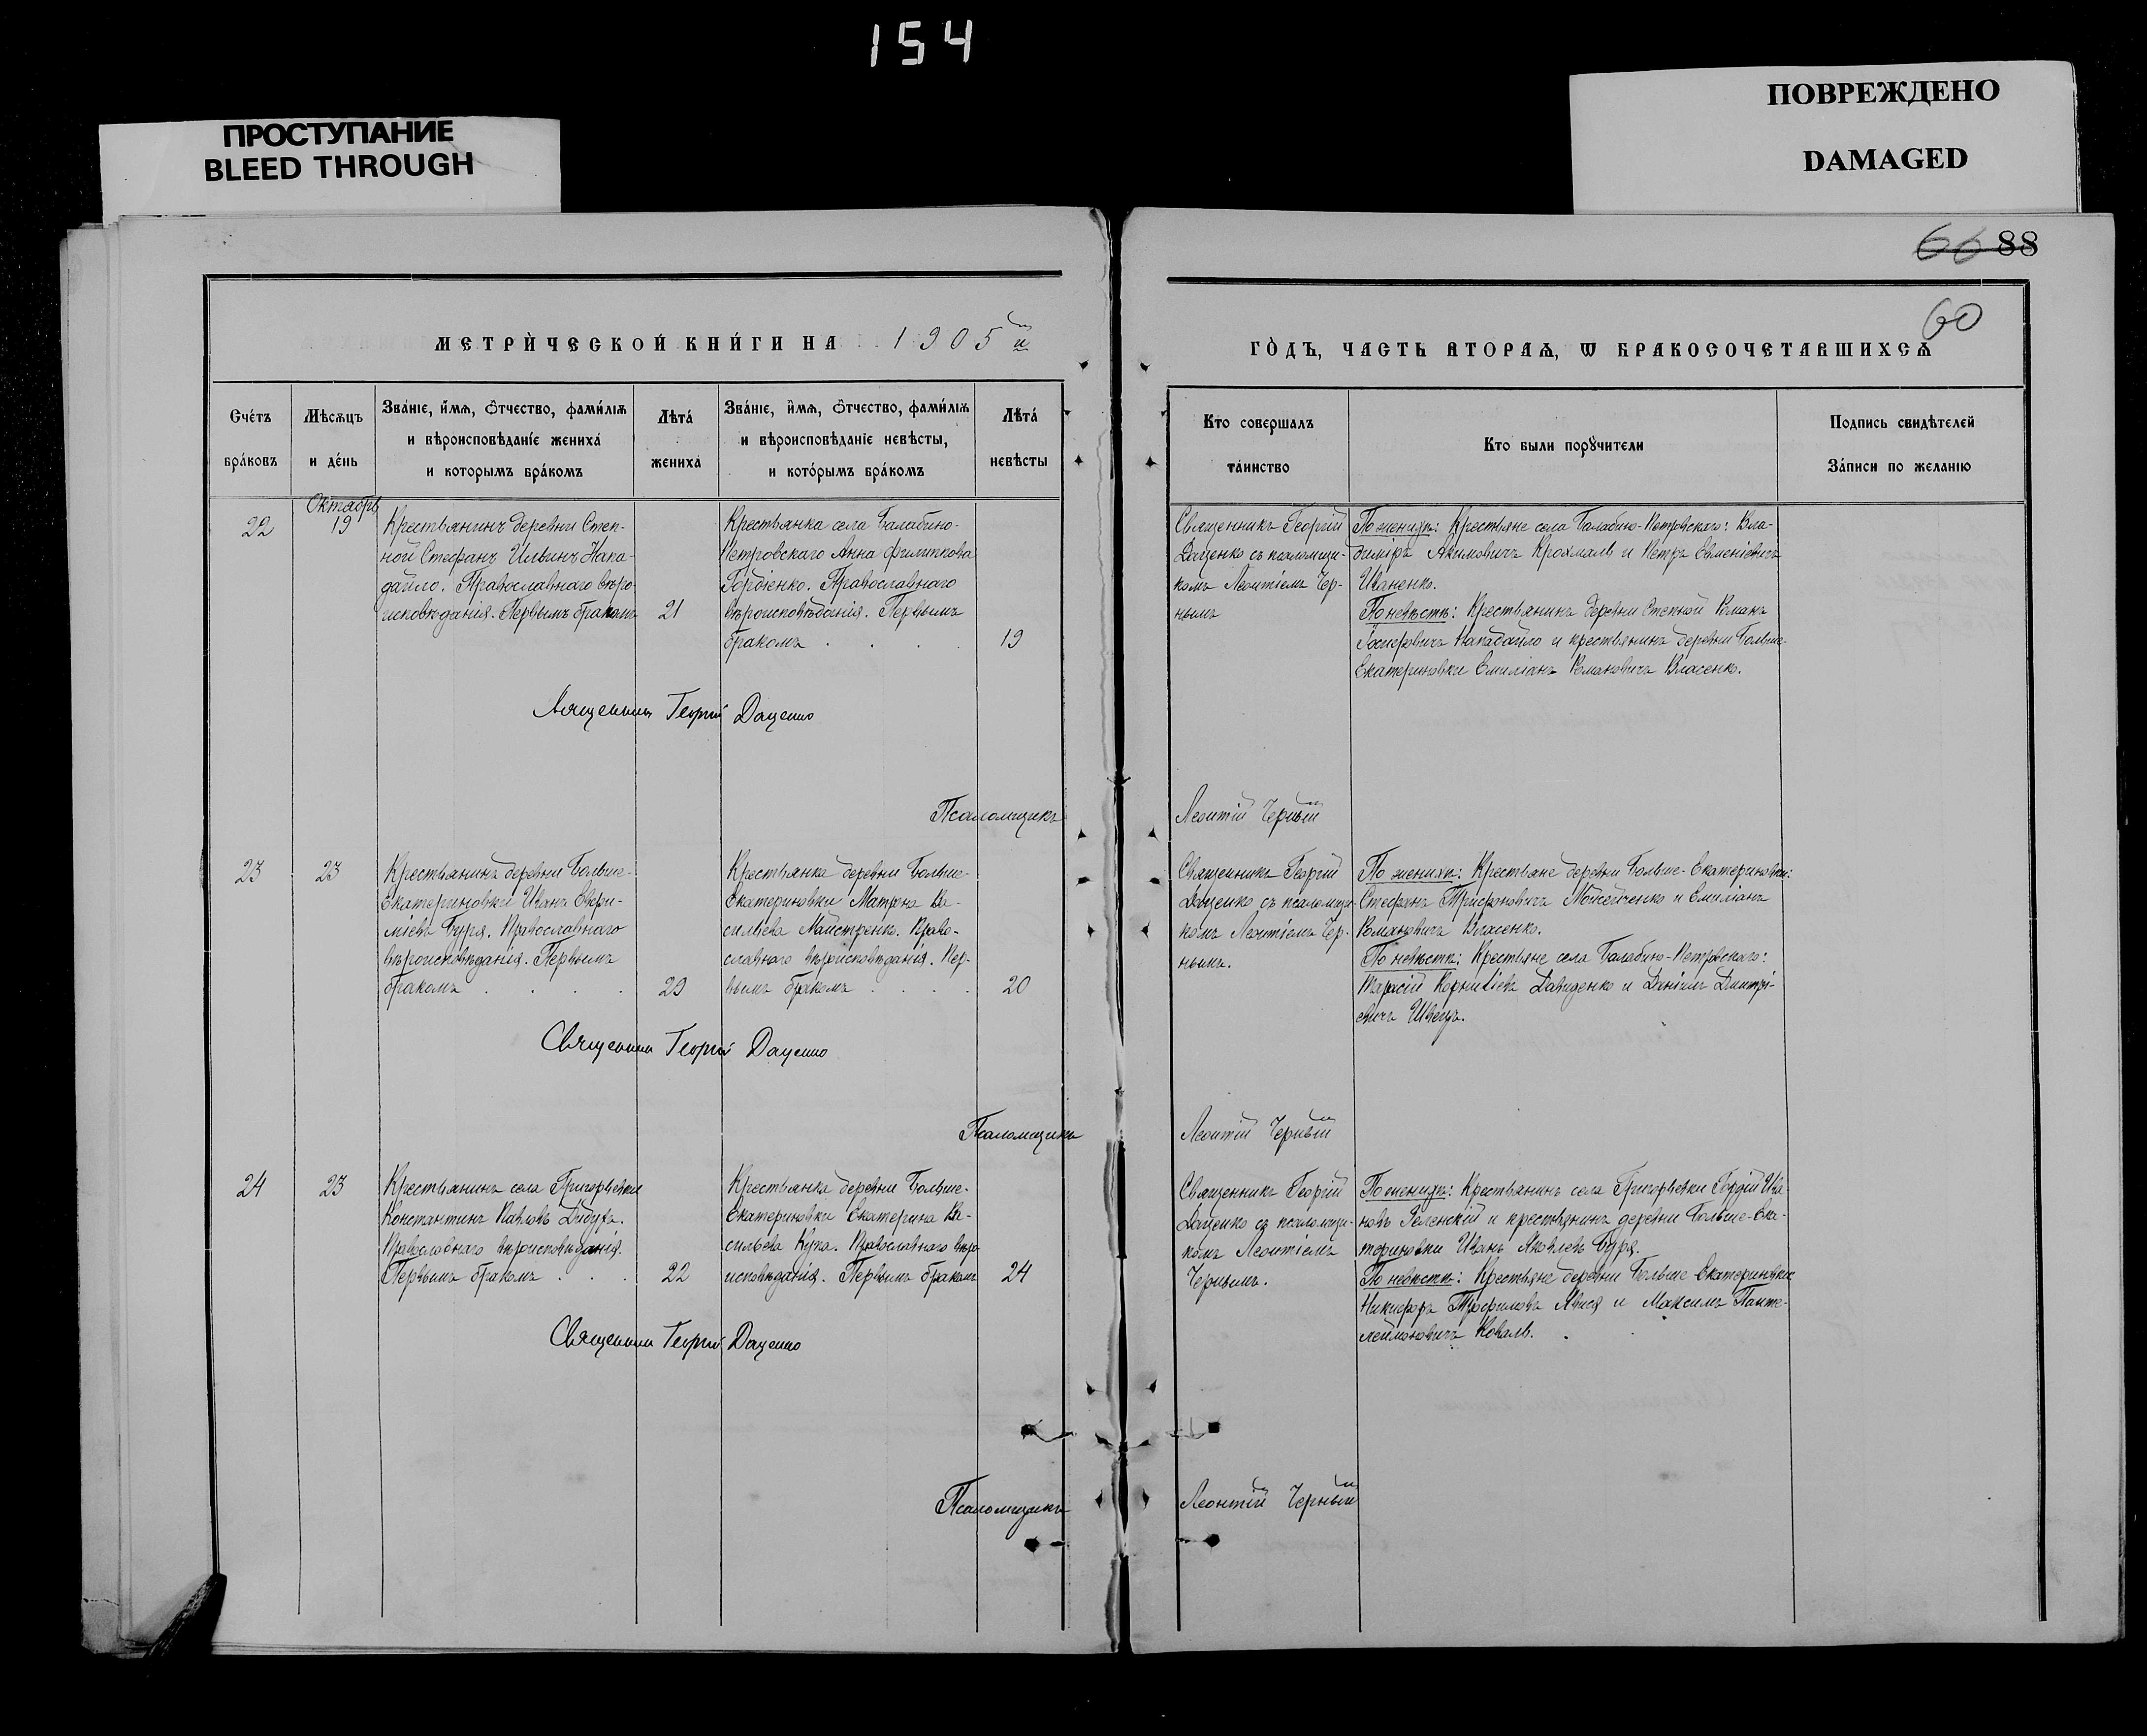 154
ПРОСТУПАНИЕ
BLEED THROUGH
ПОВРЕЖДЕНО
DAMAGED
66 88
60
МЕТРИ́ЧЕСКОЙ КНИ́ГИ НА 1905й
Сче́тъ
бра́ковъ
Мѣ́сѧцъ
и де́нь
Зва́нїе, и́мѧ, ѻ҆́тчество, фами́лїѧ
и вѣроисповѣ́данїе жениха̀
и кото́рымъ бра́комъ
Лѣта̀
жениха̀
Зва́нїе, и́мѧ, ѻ҆́тчество, фами́лїѧ
и вѣроисповѣ́данїе невѣ́сты,
и кото́рымъ бра́комъ
Лѣта̀
невѣ́сты
ГО́ДЪ, ЧАСТЬ ВТОРАѦ, Ѿ БРАКОСОЧЕТАВШИХСѦ
Кто совершалъ
та́инство
Кто были порꙋчители
Подпись свидѣтелей
За́писи по желанїю
22
Октябрь
19
Крестьянинъ деревни Степ-
ной Стефанъ Ильинъ Напа-
дайло. Православнаго вѣро-
исповѣданія. Первымъ бракомъ
21
Крестьянка села Балабино-
Петровскаго Анна Филиппова
Гордіенко. Православнаго
вѣроисповѣданія. Первымъ
бракомъ . . . .
19
Священникъ Георгій
Даценко съ псаломщи-
комъ Леонтіемъ Чер-
нымъ
По женихѣ: Крестьяне села Балабино-Петровскаго: Вла-
диміръ Акимовичъ Крохмаль и Петръ Евменіевичъ
Иваненко.
По невѣстѣ: Крестьянинъ деревни Степной Романъ
Нападайло и крестьянинъ деревни Больше-
Екатериновки Емиліанъ Романовичъ Власенко.
Священникъ Георгій Даценко
Псаломщикъ Леонтій Черный
23
23
Крестьянинъ деревни Больше-
Екатериновки Иванъ Евфи-
міевъ Буря. Православнаго
вѣроисповѣданія. Первымъ
бракомъ . . . .
29
Крестьянка деревни Больше-
Екатериновки Матрона Ва-
сильева Майстренко. Право-
славнаго вѣроисповѣданія. Пер-
вымъ бракомъ . . . .
20
Священникъ Георгій
Даценко съ псаломщи-
комъ Леонтіемъ Чер-
нымъ.
По женихѣ: Крестьяне деревни Больше-Екатериновки:
Стефанъ Трифоновичъ Мойсейченко и Емиліанъ
Романовичъ Власенко.
По невѣстѣ: Крестьяне села Балабино-Петровскаго:
Тарасій Корниліевъ Давиденко и Даніилъ Димитрі-
евичъ Швецъ.
Священникъ Георгій Даценко
Псаломщикъ Леонтій Черный
24
23
Крестьянинъ села Григорьевки
Константинъ Павловъ Дибута.
Православнаго вѣроисповѣданія.
Первымъ бракомъ . . .
22
Крестьянка деревни Больше-
Екатериновки Екатерина Ва-
сильева Купа. Православнаго вѣро-
исповѣданія. Первымъ бракомъ
24
Священникъ Георгій
Даценко съ псаломщи-
комъ Леонтіемъ
Чернымъ.
По женихѣ: Крестьянинъ села Григорьевки Гордій Ива-
новъ Зеленскій и крестьянинъ деревни Больше-Ека-
териновки Иванъ Яковлевъ Буря.
По невѣстѣ: Крестьяне деревни Больше-Екатериновки
Никифоръ Трофимовъ и Максимъ Панте-
леймоновичъ Коваль.
Священникъ Георгій Даценко
Псаломщикъ Леонтій Черный